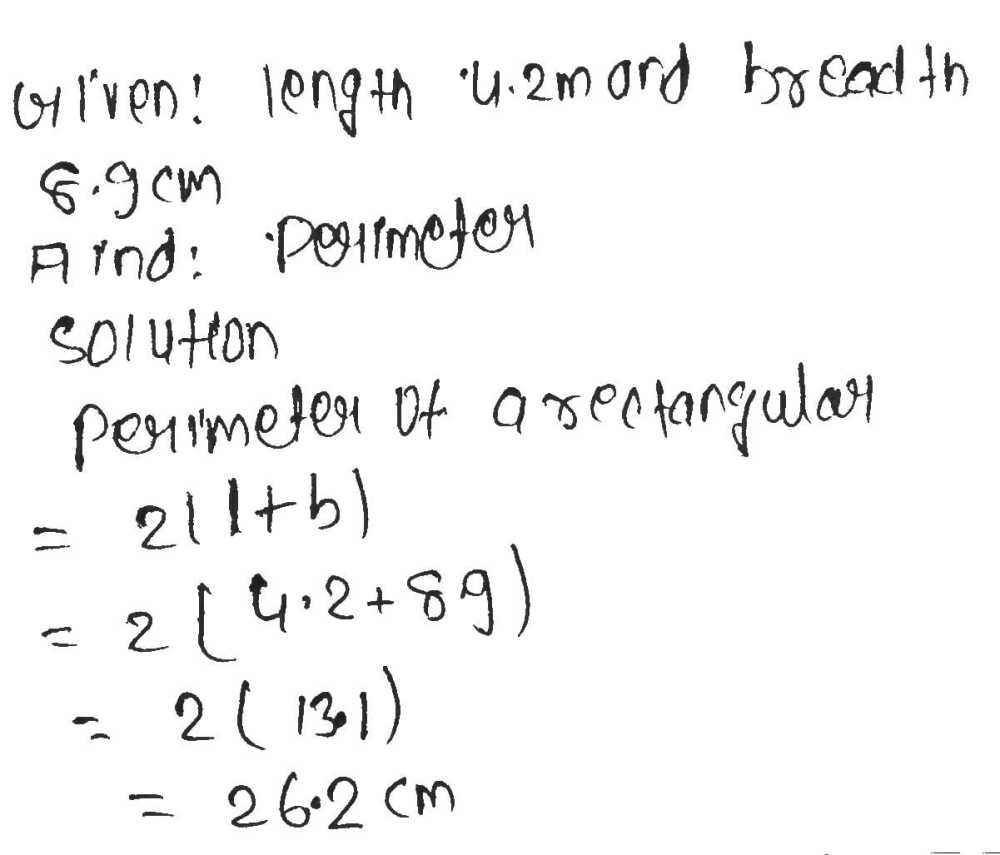 Given! length 4.2m and breadth
8.9cm
Find: perimeter
Solution
perimeter of a rectangular
= 2(l+b)
= 2(4.2+89)
= 2(13.1)
= 26.2 cm